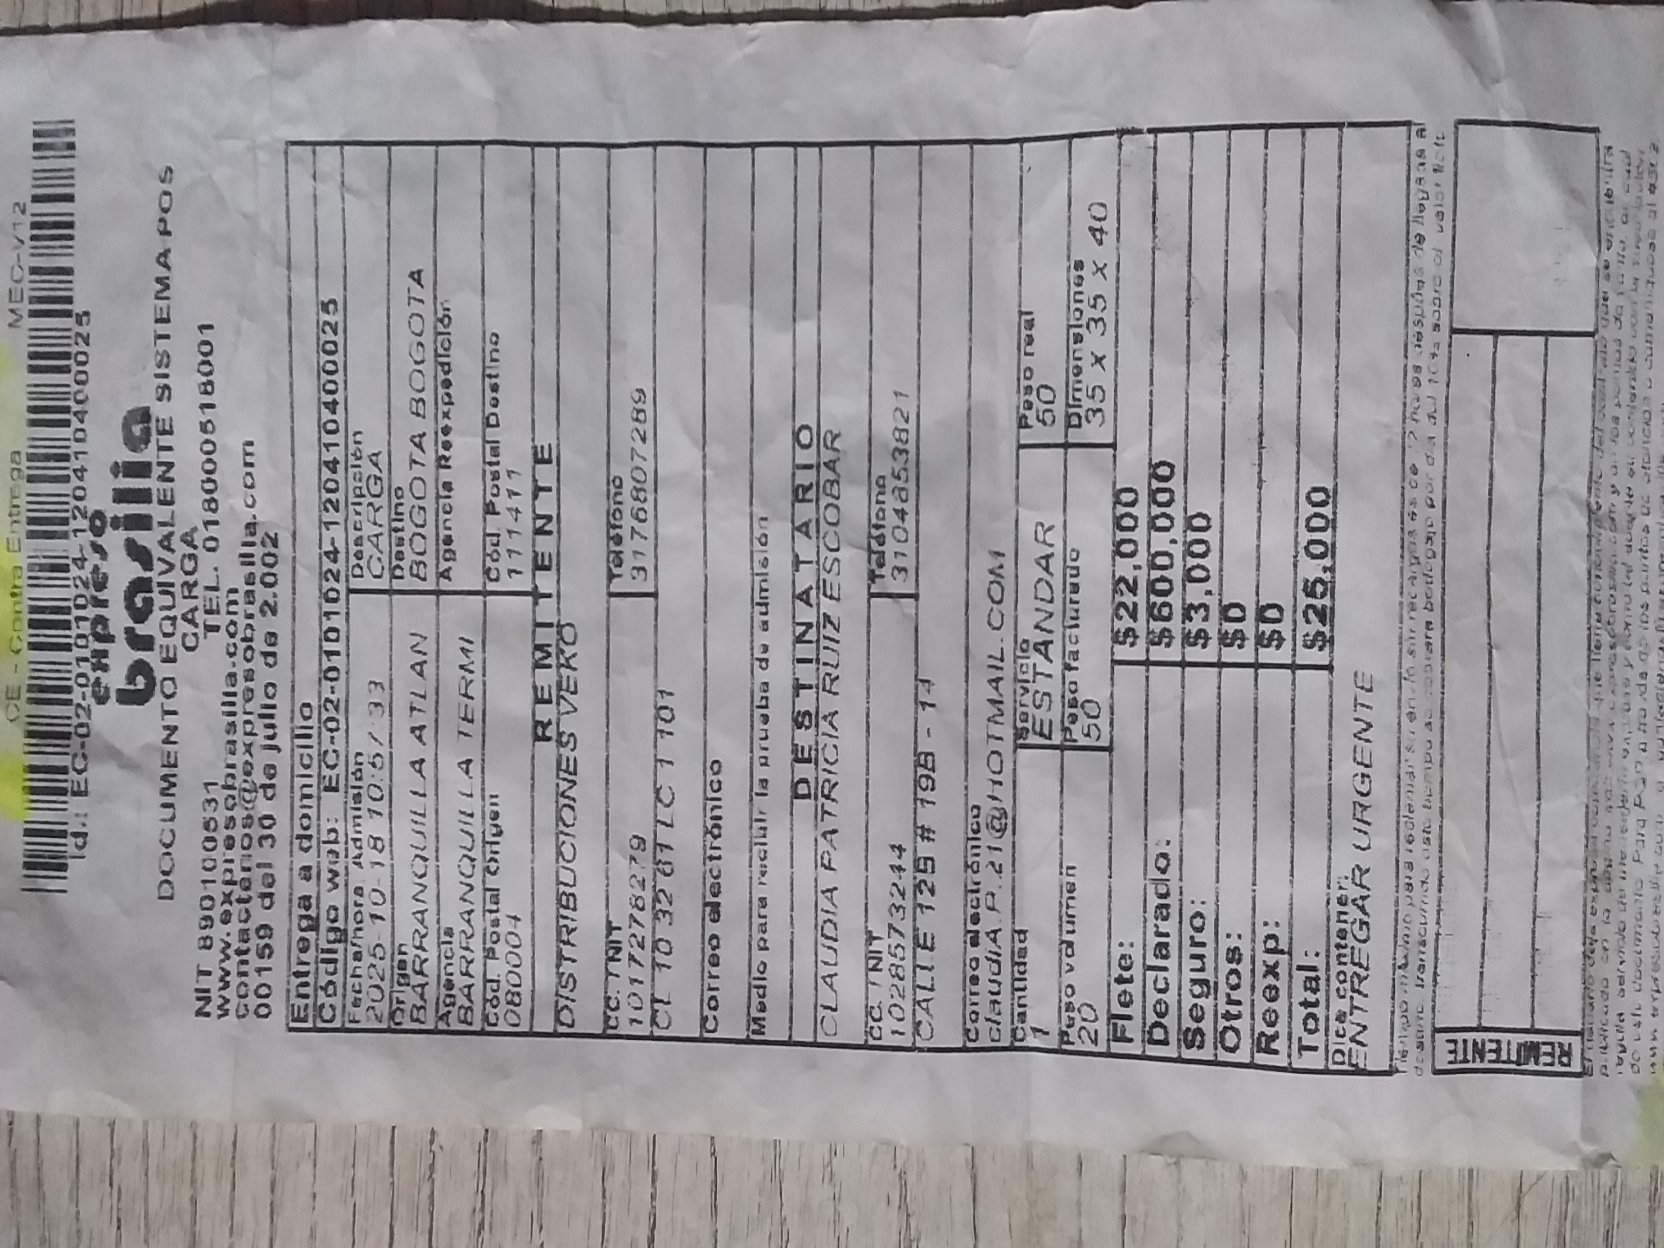 CE - Contra Entrega MEC-V12
Id.: EC-02-0101024-1204104000025
expreso
brasilia
DOCUMENTO EQUIVALENTE SISTEMA POS
CARGA
NIT 890100531 TEL. 018000518001
www.expresobrasilia.com
contactenos@expresobrasilia.com
00159 del 30 de julio de 2.002
Entrega a domicilio
Código web: EC-02-0101024-1204104000025
Fecha/hora Admisión Descripción
2025-10-18 10:57 33 CARGA
Origen Destino
BARRANQUILLA ATLAN BOGOTA BOGOTA
Agencia Agencia Reexpedición
BARRANQUILLA TERMI
Cód. Postal Origen Cód. Postal Destino
080001 111411
REMITENTE
DISTRIBUCIONES VERO
CC. / NIT Teléfono
1017278279 3176807289
CL 10 32 61 LC 1 101
Correo electrónico
Medio para recibir la prueba de admisión
DESTINATARIO
CLAUDIA PATRICIA RUIZ ESCOBAR
CC. / NIT Teléfono
1028573244 3104853821
CALLE 12S # 19B - 14
Correo electrónico
claudiA.P.21@HOTMAIL.COM
Cantidad Servicio Peso real
1 ESTANDAR 50
Peso volumen Peso facturado Dimensiones
20 50 35 x 35 x 40
Flete: $22,000
Declarado: $600,000
Seguro: $3,000
Otros: $0
Reexp: $0
Total: $25,000
Dice contener:
ENTREGAR URGENTE
REMITENTE